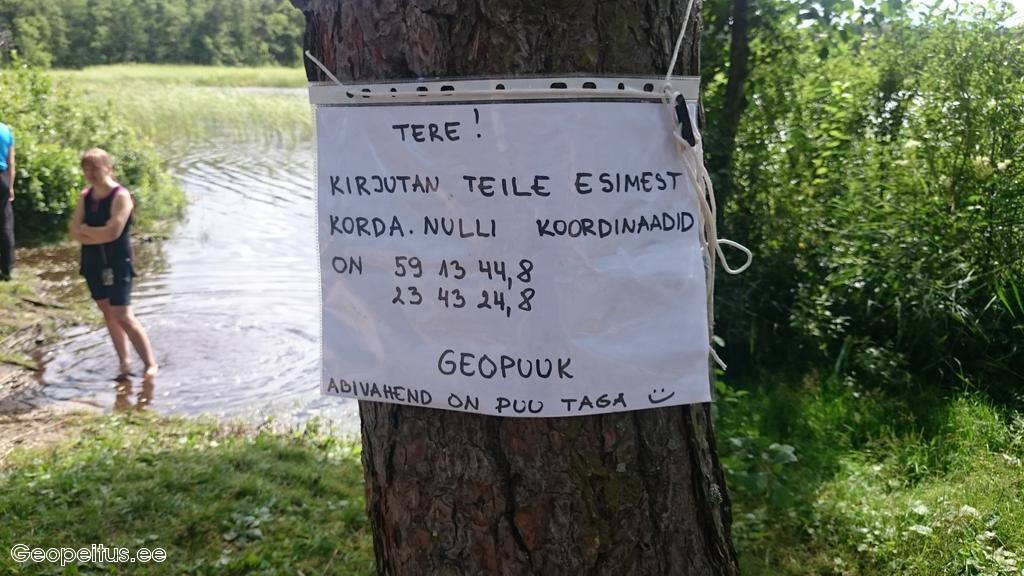 TERE!
KIRJUTAN TEILE ESIMEST
KORDA. NULLI KOORDINAADID
ON 59 13 44,8
23 43 24,8
GEOPUUK
ABIVAHEND ON PUU TAGA :)
Geopeitus.ee